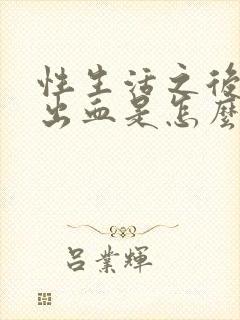 性生活之後
出血是怎麼
吕業輝